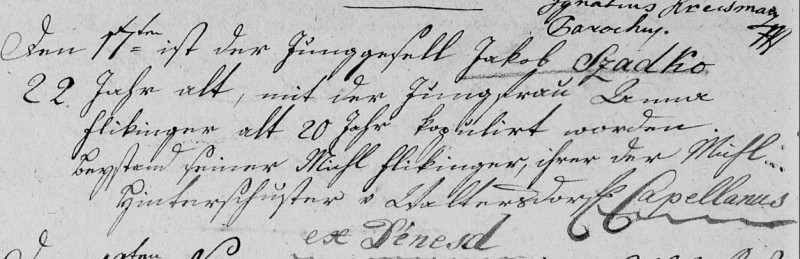 Ignatius Kreisman
Parochus.
Den 17ten ist der Junggesell Jakob Szadko
22 Jahr alt, mit der Jungfrau Anna
Flikinger alt 20 Jahr kopulirt worden.
Beystand seiner Michl Flikinger, ihrer der Michl
Hinterschuster v Waltersdorf Capellanus
ex Pénesd